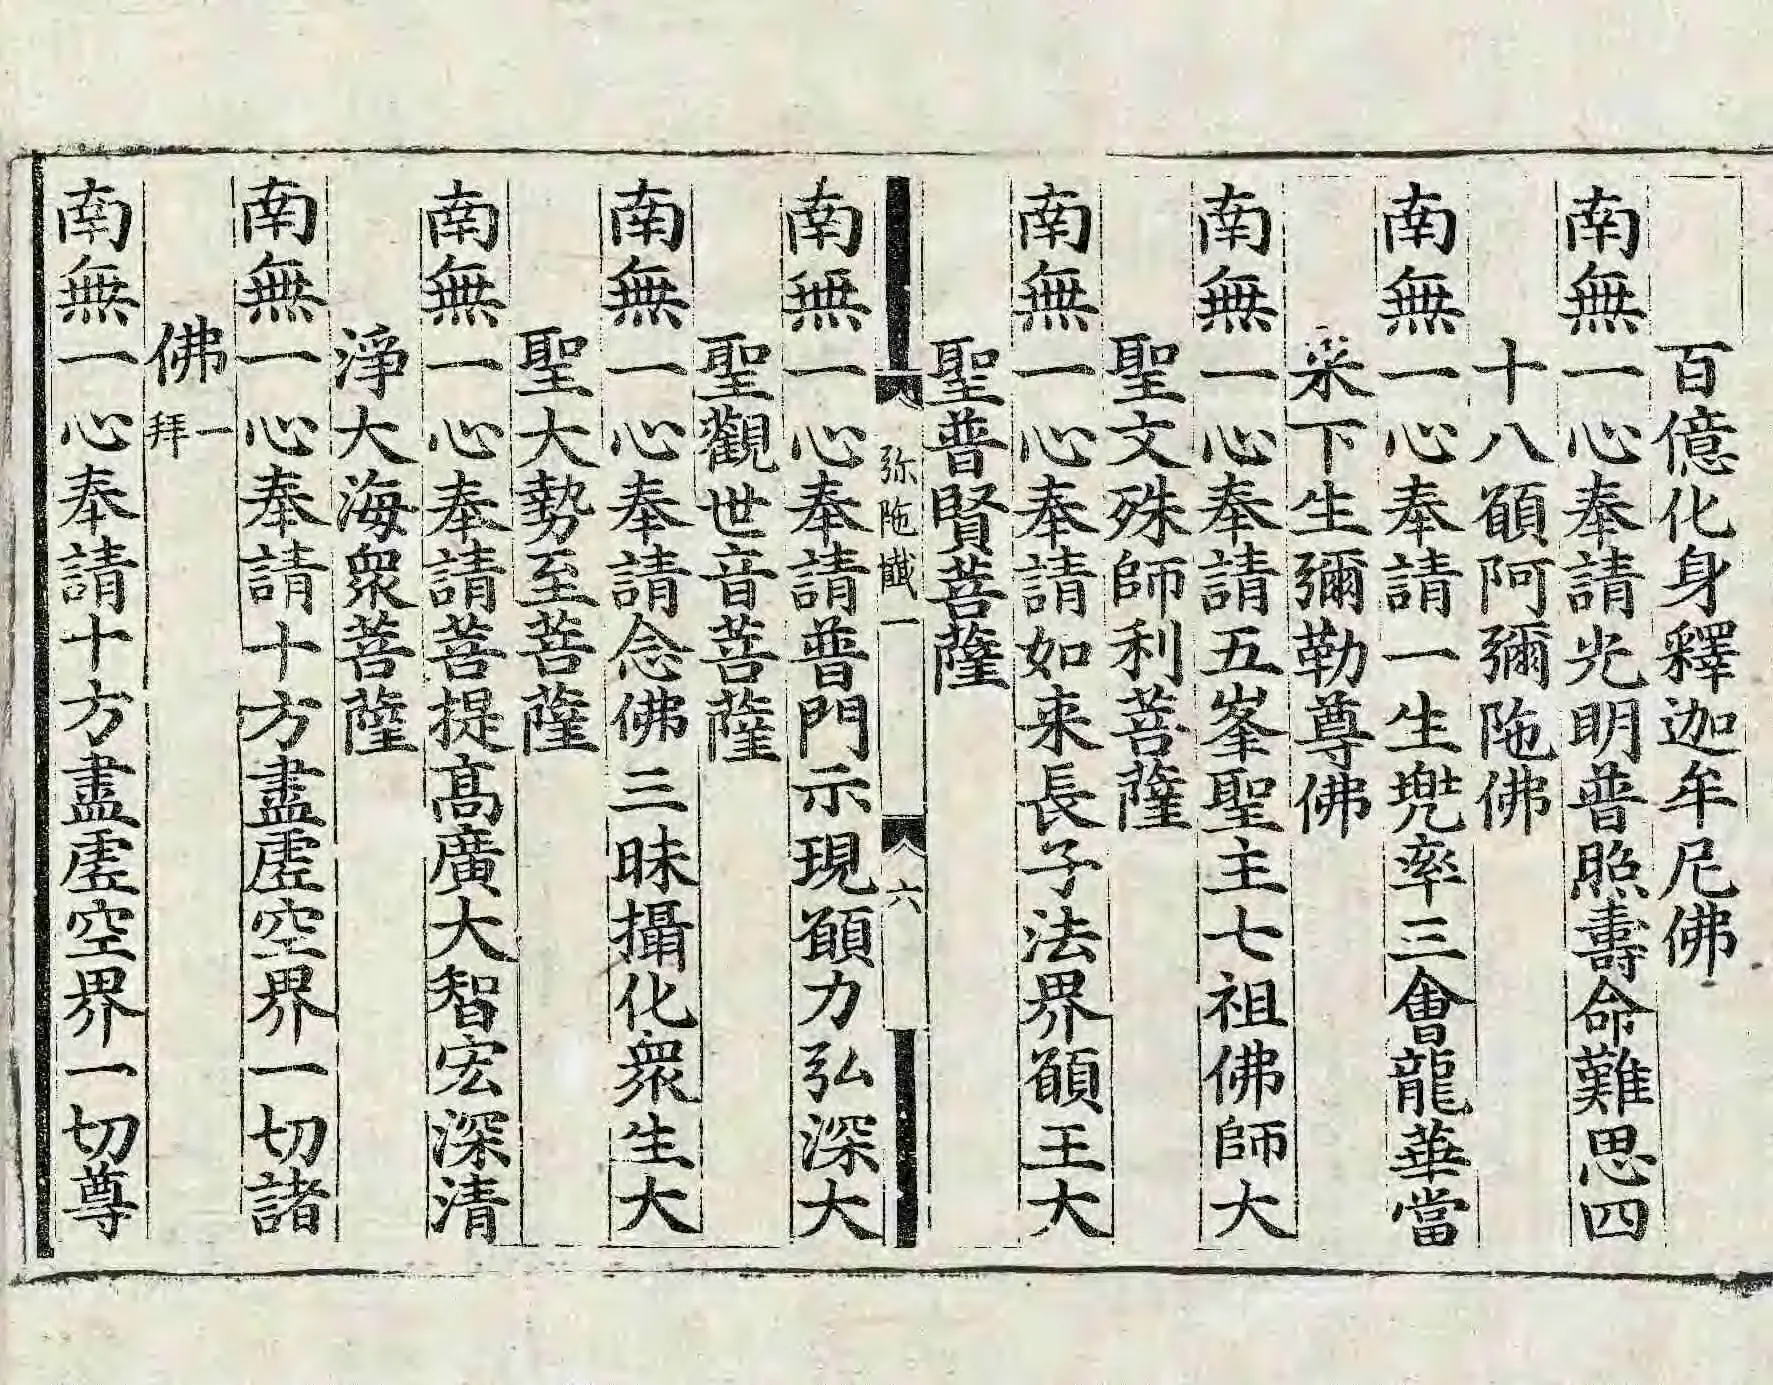 百億化身釋迦牟尼佛
南無一心奉請光明普照壽命難思四
十八願阿彌陁佛
南無一心奉請一生兠率三會龍華當
来下生彌勒尊佛
南無一心奉請五峯聖主七祖佛師大
聖文殊師利菩薩
南無一心奉請如来長子法界願王大
聖普賢菩薩
弥陁懺一 六
南無一心奉請普門示現願力弘深大
聖觀世音菩薩
南無一心奉請念佛三昧攝化衆生大
聖大勢至菩薩
南無一心奉請菩提髙廣大智宏深清
淨大海衆菩薩
南無一心奉請十方盡虛空界一切諸
佛一拜
南無一心奉請十方盡虛空界一切尊